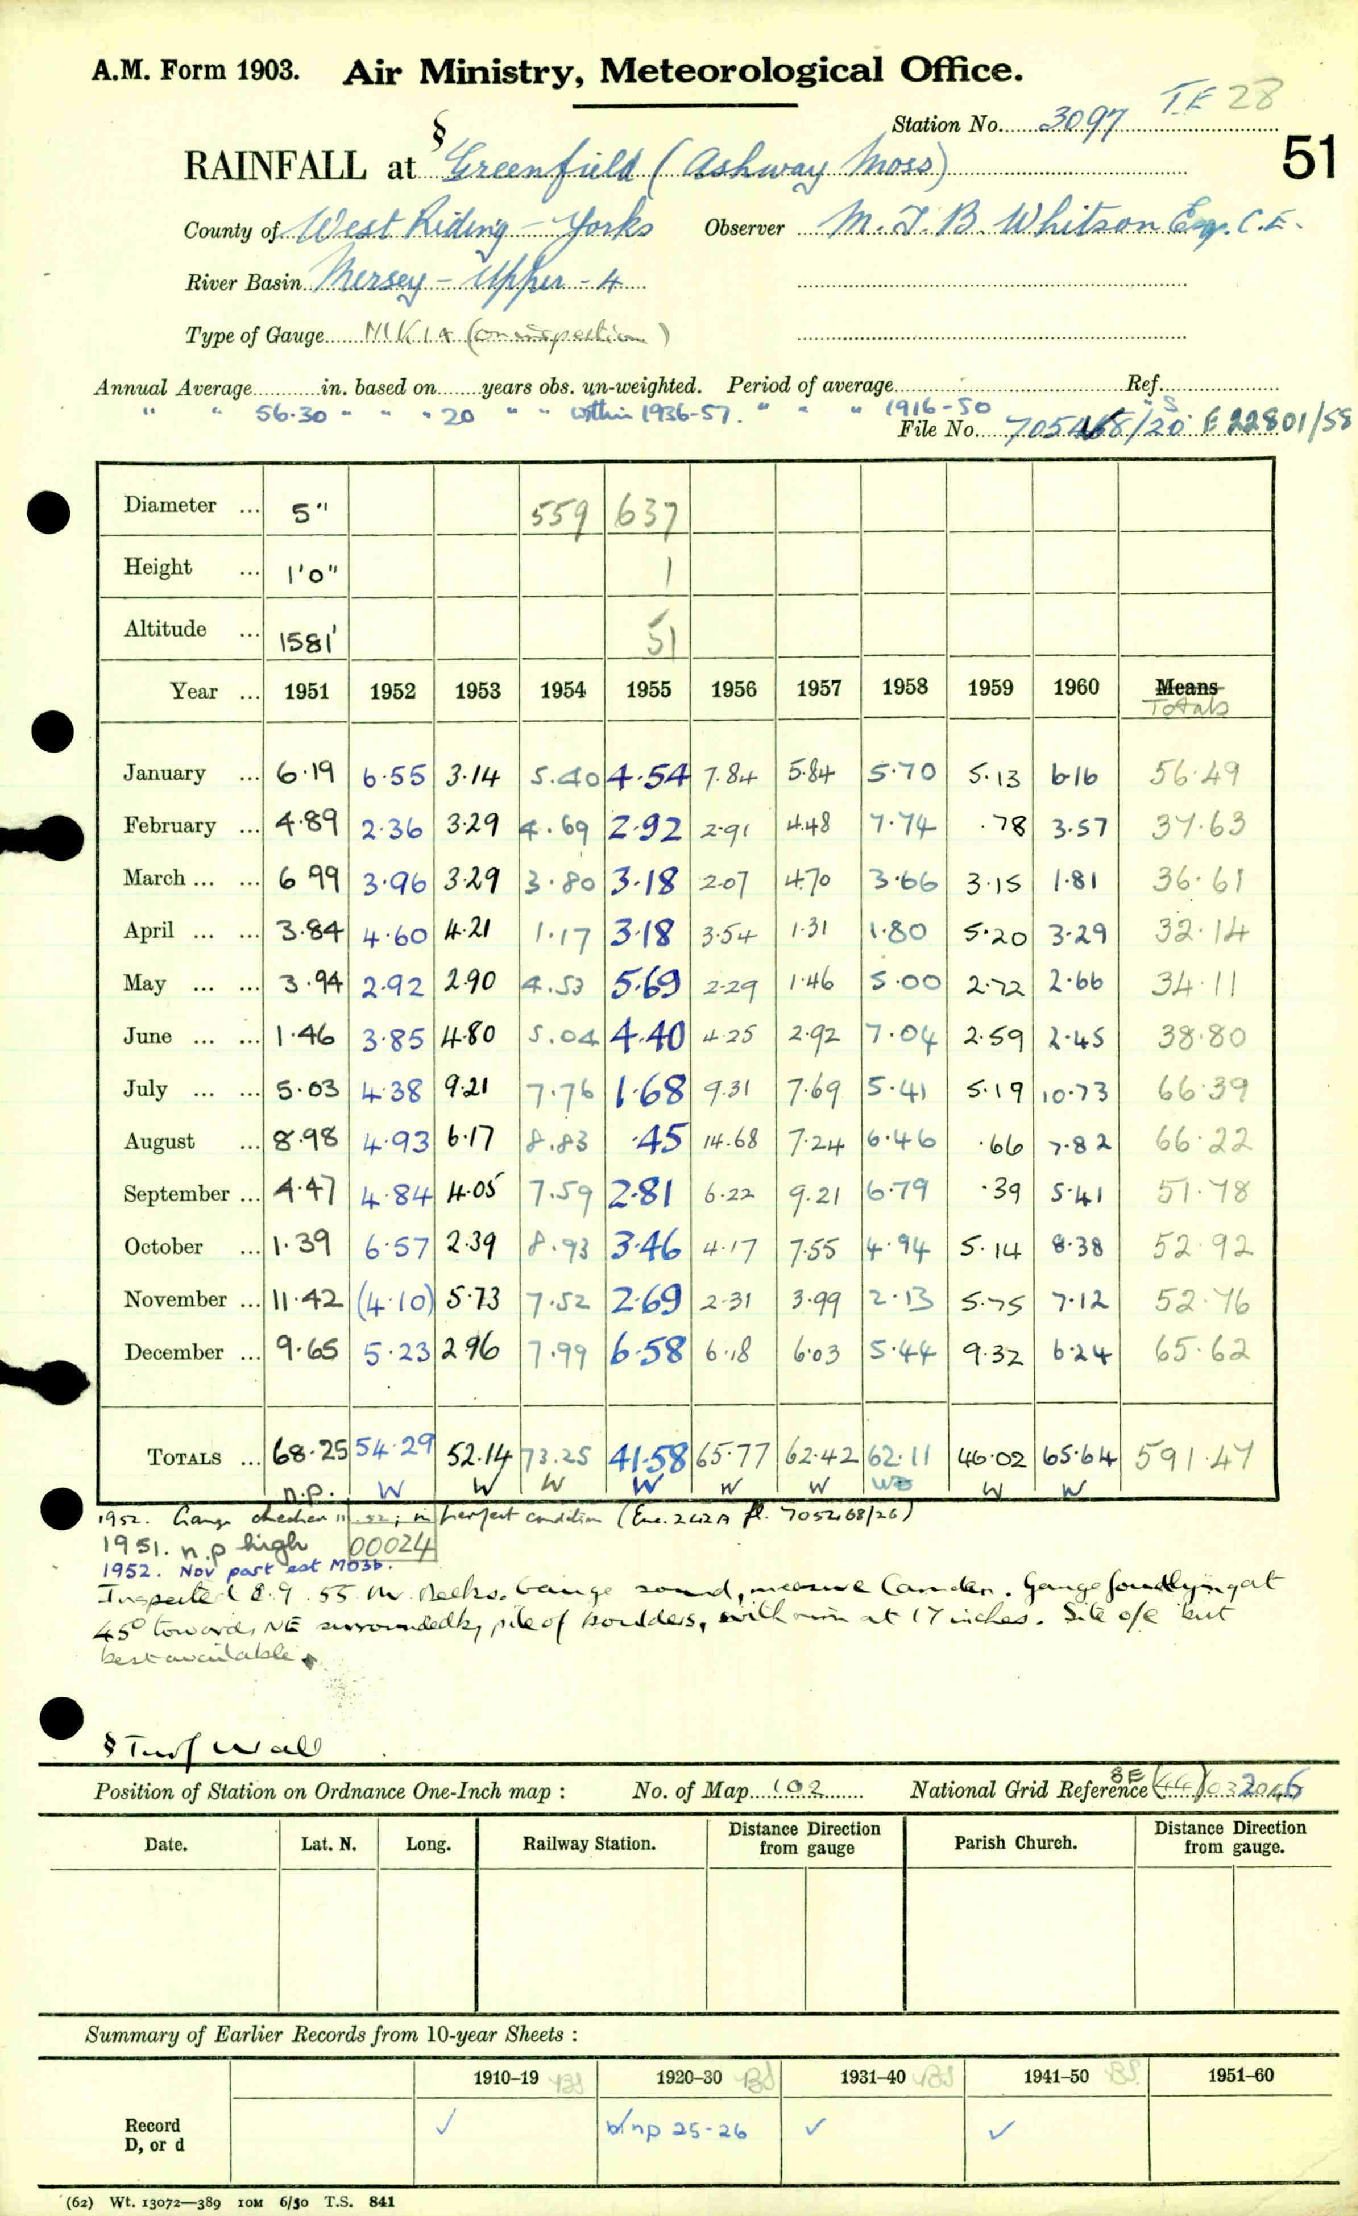 A.M. Form 1903. Air Ministry, Meteorological Office.
Station No. 3097 T.E 28
51
§
RAINFALL at Greenfield (Ashway Moss)
County of West Riding - Yorks Observer M. T. B. Whitson Esq. C.E.
River Basin Mersey - Upper - 4
Type of Gauge MK 1A (on inspection)
Annual Average in. based on years obs. un-weighted. Period of average Ref.
" " 56.30 " " " 20 " " within 1936-57. " " " 1916-50 "S
File No. 705468/20 E 22801/58
Diameter ... 5" 559 637
Height ... 1'0" 1
Altitude ... 1581' 51
Year ... 1951 1952 1953 1954 1955 1956 1957 1958 1959 1960 Means
Totals
January ... 6.19 6.55 3.14 5.40 4.54 7.84 5.84 5.70 5.13 6.16 56.49
February ... 4.89 2.36 3.29 4.69 2.92 2.91 4.48 7.74 .78 3.57 37.63
March ... ... 6 99 3.96 3.29 3.80 3.18 2.07 4.70 3.66 3.15 1.81 36.61
April ... ... 3.84 4.60 4.21 1.17 3.18 3.54 1.31 1.80 5.20 3.29 32.14
May ... ... 3.94 2.92 2.90 4.53 5.69 2.29 1.46 5.00 2.72 2.66 34.11
June ... ... 1.46 3.85 4.80 5.04 4.40 4.25 2.92 7.04 2.59 2.45 38.80
July ... ... 5.03 4.38 9.21 7.76 1.68 9.31 7.69 5.41 5.19 10.73 66.39
August ... 8.98 4.93 6.17 8.83 .45 14.68 7.24 6.46 .66 7.82 66.22
September ... 4.47 4.84 4.05 7.59 2.81 6.22 9.21 6.79 .39 5.41 51.78
October ... 1.39 6.57 2.39 8.93 3.46 4.17 7.55 4.94 5.14 8.38 52.92
November ... 11.42 (4.10) 5.73 7.52 2.69 2.31 3.99 2.13 5.75 7.12 52.76
December ... 9.65 5.23 2 96 7.99 6.58 6.18 6.03 5.44 9.32 6.24 65.62
TOTALS ... 68.25 54.29 52.14 73.25 41.58 65.77 62.42 62.11 46.02 65.64 591.47
n.p. W W W W W W W W
1952. Gauge checked 11.52; in perfect condition (Enc. 242A fl. 705468/26)
1951. n.p high 00024
1952. Nov part est MO3b.
Inspected 8.9.55 Mr. Meeks. Gauge sound, measure Camden. Gauge found lying at
45° towards NE surrounded by pile of boulders, with rim at 17 inches. Site o/e but
best available.
§ Turf Wall
Position of Station on Ordnance One-Inch map : No. of Map 102 National Grid Reference SE (44) 032046
Date. Lat. N. Long. Railway Station. Distance from Direction gauge Parish Church. Distance from Direction gauge.
Summary of Earlier Records from 10-year Sheets :
1910–19 BS 1920–30 BS 1931–40 BS 1941–50 BS 1951–60
Record ✓ np 25-26 ✓ ✓
D, or d
(62) Wt. 13072—389 10M 6/50 T.S. 841